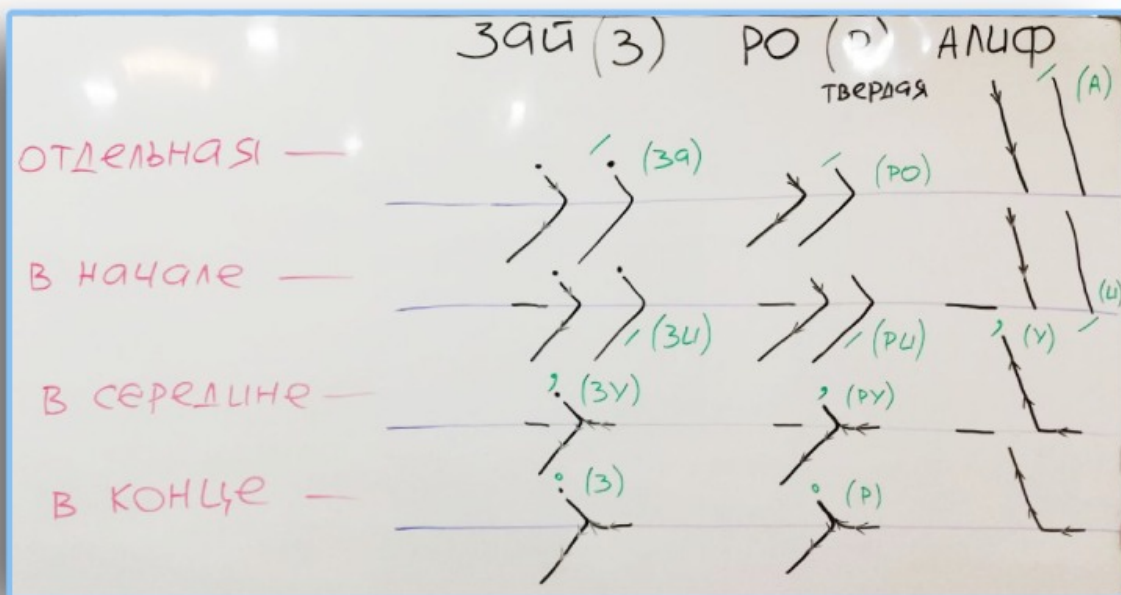 ЗАЙ (З) РО (Р) АЛИФ
ТВЕРДАЯ
ОТДЕЛЬНАЯ — (ЗА) (РО) (А)
В НАЧАЛЕ — (ЗИ) (РИ) (И)
В СЕРЕДИНЕ — (ЗУ) (РУ) (У)
В КОНЦЕ — (З) (Р)